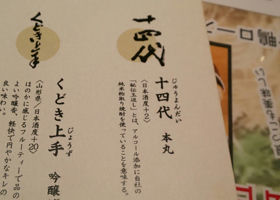 十四代
じゅうよんだい
十四代 本丸
〈日本酒度+2〉
「秘伝玉返し」とは、アルコール添加に自社の
純米粕取り焼酎を使っていることを意味する。
くどき上手
じょうず
くどき上手 吟醸
〈山形県/日本酒度+20〉
ほのかに感じるフルーティーで品の
よい吟醸香。軽快で円やかなキレの
良い味わい。
鴨ロー